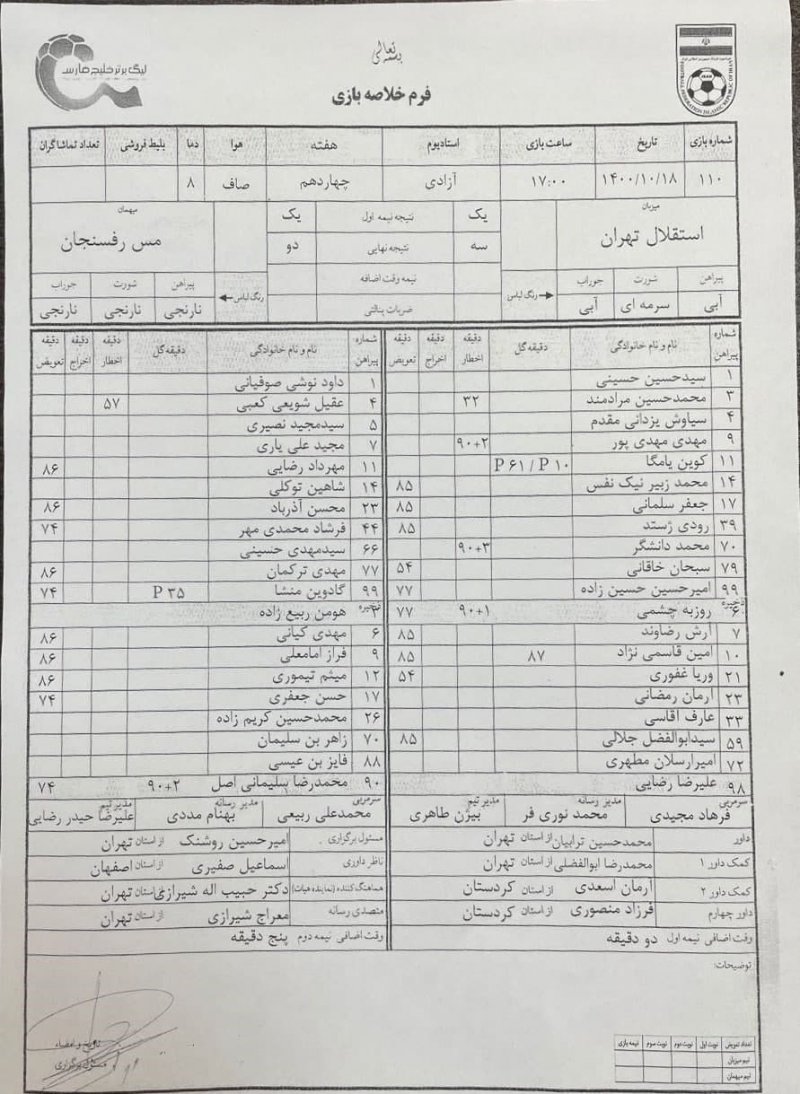 بسمه تعالی
لیگ برتر خلیج فارس
FOOTBALL FEDERATION ISLAMIC REPUBLIC OF IRAN
فرم خلاصه بازی
شماره بازی تاریخ ساعت بازی استادیوم هفته هوا دما بلیط فروشی تعداد تماشاگران
۱۱۰ ۱۴۰۰/۱۰/۱۸ ۱۷:۰۰ آزادی چهاردهم صاف ۸
میزبان یک نتیجه نیمه اول یک میهمان
استقلال تهران سه نتیجه نهایی دو مس رفسنجان
نیمه وقت اضافه
پیراهن شورت جوراب رنگ لباس ضربات پنالتی رنگ لباس پیراهن شورت جوراب
آبی سرمه ای آبی نارنجی نارنجی نارنجی
شماره پیراهن نام و نام خانوادگی دقیقه گل دقیقه اخطار دقیقه اخراج دقیقه تعویض شماره پیراهن نام و نام خانوادگی دقیقه گل دقیقه اخطار دقیقه اخراج دقیقه تعویض
۱ سیدحسین حسینی ۱ داود نوشی صوفیانی
۳ محمدحسین مرادمند ۳۲ ۴ عقیل شویعی کعبی ۵۷
۴ سیاوش یزدانی مقدم ۵ سیدمجید نصیری
۹ مهدی مهدی پور ۹۰+۲ ۷ مجید علی یاری
۱۱ کوین یامگا P ۶۱ / P ۱۰ ۱۱ مهرداد رضایی ۸۶
۱۴ محمد زبیر نیک نفس ۸۵ ۱۴ شاهین توکلی
۱۷ جعفر سلمانی ۸۵ ۲۳ محسن آذرباد ۸۶
۳۹ رودی ژستد ۸۵ ۴۴ فرشاد محمدی مهر ۷۴
۷۰ محمد دانشگر ۹۰+۳ ۶۶ سیدمهدی حسینی
۷۹ سبحان خاقانی ۵۴ ۷۷ مهدی ترکمان ۸۶
۹۹ امیرحسین حسین زاده ۷۷ ۹۹ گادوین منشا P ۳۵ ۷۴
ذخیره ۶ روزبه چشمی ۹۰+۱ ۷۷ ذخیره هومن ربیع زاده
۷ آرش رضاوند ۸۵ ۶ مهدی کیانی ۸۶
۱۰ امین قاسمی نژاد ۸۷ ۸۵ ۹ فراز امامعلی ۸۶
۲۱ وریا غفوری ۵۴ ۱۲ میثم تیموری ۸۶
۲۳ آرمان رمضانی ۱۷ حسن جعفری ۷۴
۳۳ عارف آقاسی ۲۶ محمدحسین کریم زاده
۵۹ سیدابوالفضل جلالی ۸۵ ۷۰ زاهر بن سلیمان
۷۲ امیرارسلان مطهری ۸۸ فایز بن عیسی
۹۸ علیرضا رضایی ۹۰ محمدرضا سلیمانی اصل ۹۰+۲ ۷۴
سرمربی فرهاد مجیدی مدیر رسانه محمد نوری فر مدیر تیم بیژن طاهری سرمربی محمدعلی ربیعی مدیر رسانه بهنام مددی مدیر تیم علیرضا حیدر رضایی
داور محمدحسین ترابیان از استان تهران مسئول برگزاری امیرحسین روشنک از استان تهران
کمک داور ۱ محمدرضا ابوالفضلی از استان تهران ناظر داوری اسماعیل صفیری از استان اصفهان
کمک داور ۲ آرمان اسعدی از استان کردستان هماهنگ کننده (نماینده هیات) دکتر حبیب اله شیرازی از استان تهران
داور چهارم فرزاد منصوری از استان کردستان متصدی رسانه معراج شیرازی از استان تهران
وقت اضافی نیمه اول دو دقیقه وقت اضافی نیمه دوم پنج دقیقه
توضیحات:
تاریخ و امضاء
مسئول برگزاری
تعداد تعویض نوبت اول نوبت دوم نوبت سوم نیمه بازی
تیم میزبان
تیم میهمان